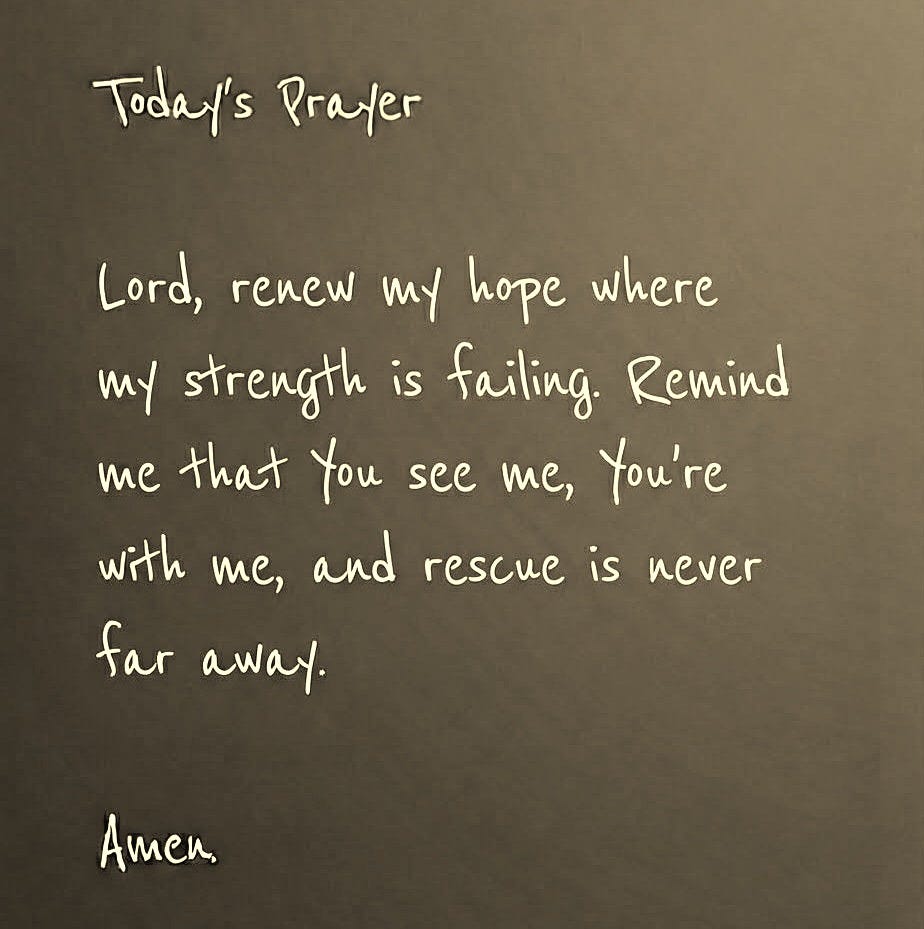 Today's Prayer
Lord, renew my hope where
my strength is failing. Remind
me that You see me, You're
with me, and rescue is never
far away.
Amen.